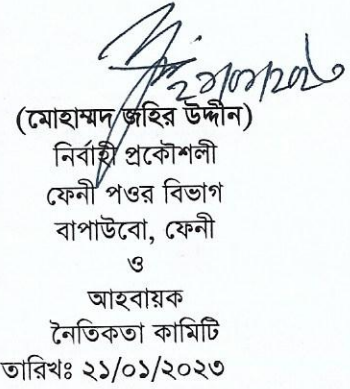 ২১/০১/২০২৩
(মোহাম্মদ জহির উদ্দীন)
নির্বাহী প্রকৌশলী
ফেনী পওর বিভাগ
বাপাউবো, ফেনী
ও
আহবায়ক
নৈতিকতা কামিটি
তারিখঃ ২১/০১/২০২৩